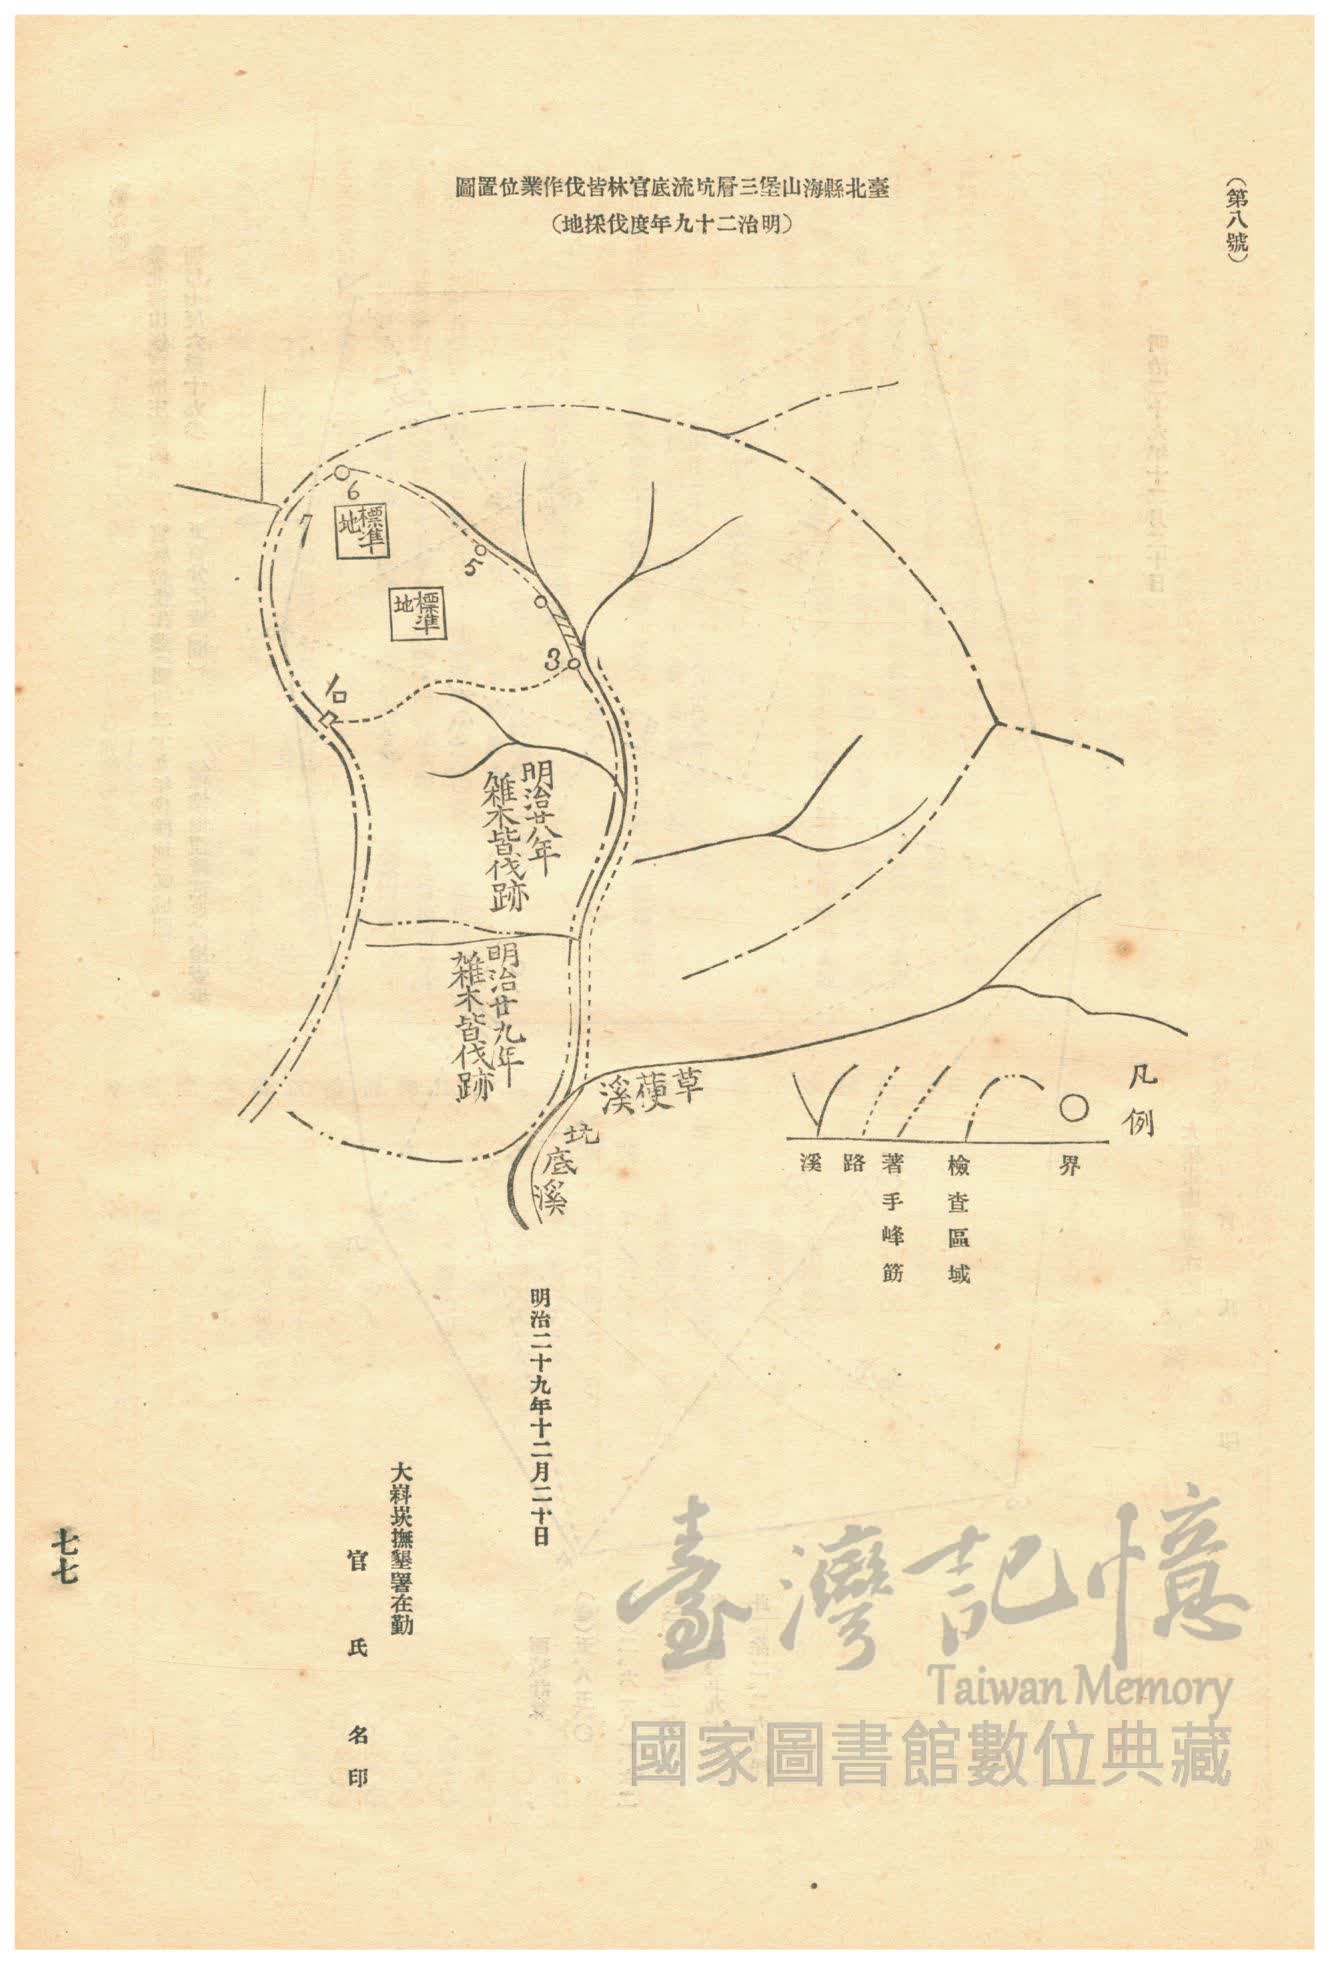 （第八號）
臺北縣海山堡三層坑流底官林皆伐作業位置圖
（明治二十九年度伐採地）
6
7
標準地
5
標準地
3
明治廿八年
雜木皆伐跡
明治廿九年
雜木皆伐跡
草𦯶溪
坑底溪
凡例
界
檢查區域
著手峰筋
路
溪
明治二十九年十二月二十日
大嵙崁撫墾署在勤
官氏名印
七七
臺灣記憶
Taiwan Memory
國家圖書館數位典藏